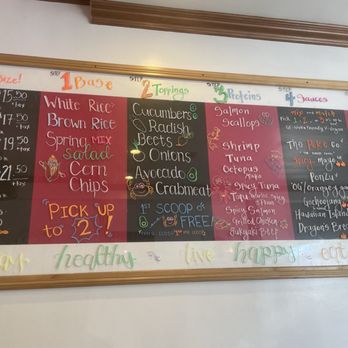 size!
15.50
+ tax
17.50
+ tax
19.50
+ tax
21.50
+ tax
STEP 1 Base
White Rice
Brown Rice
Spring MIX
Salad
Corn
Chips
PICK up
to 2!
STEP 2 Toppings
Cucumbers
Radish
Beets
Onions
Avocado
Crabmeat
1ST SCOOP of
FREE!
STEP 3 Proteins
Salmon
Scallops
Shrimp
Tuna
Octopus
Spicy Tuna
Spicy Salmon
Grilled Chicken
Sukiyaki Beef
STEP 4 Sauces
mix and match
THE POKE CO.
Spicy mayo
Ponzu
Gochujang
Hawaiian Island
Dragon's Breath
healthy live happy eat